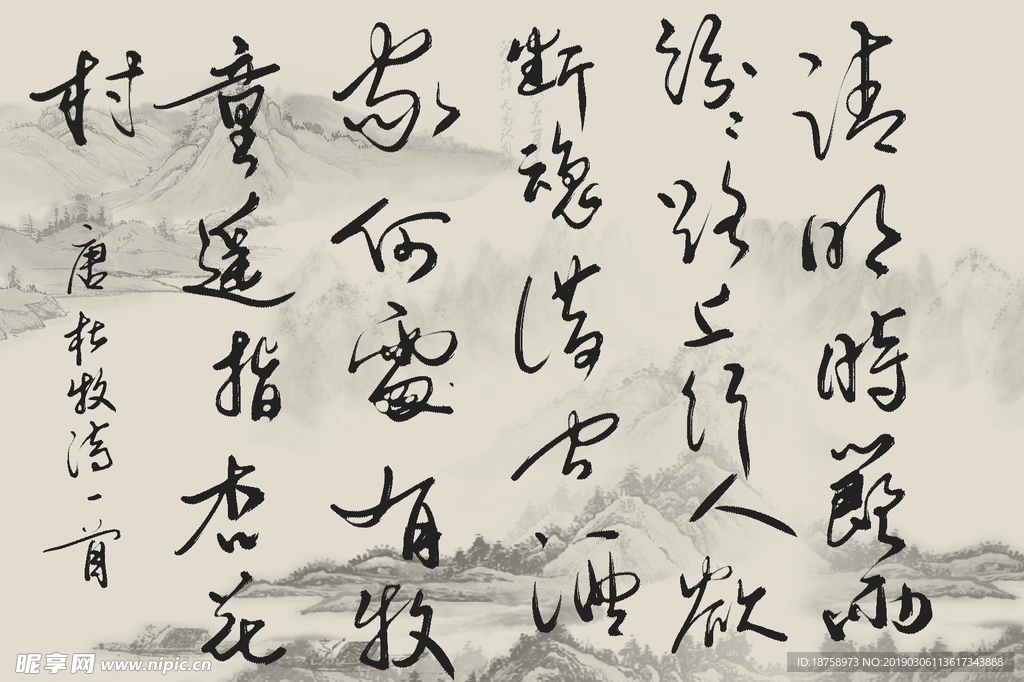 清明時節雨
紛々路上行人欲
断魂借问酒
家何處有牧
童遥指杏花
村
唐杜牧诗一首
昵享网 www.nipic.cn
ID:18758973 NO:20190306113617343888